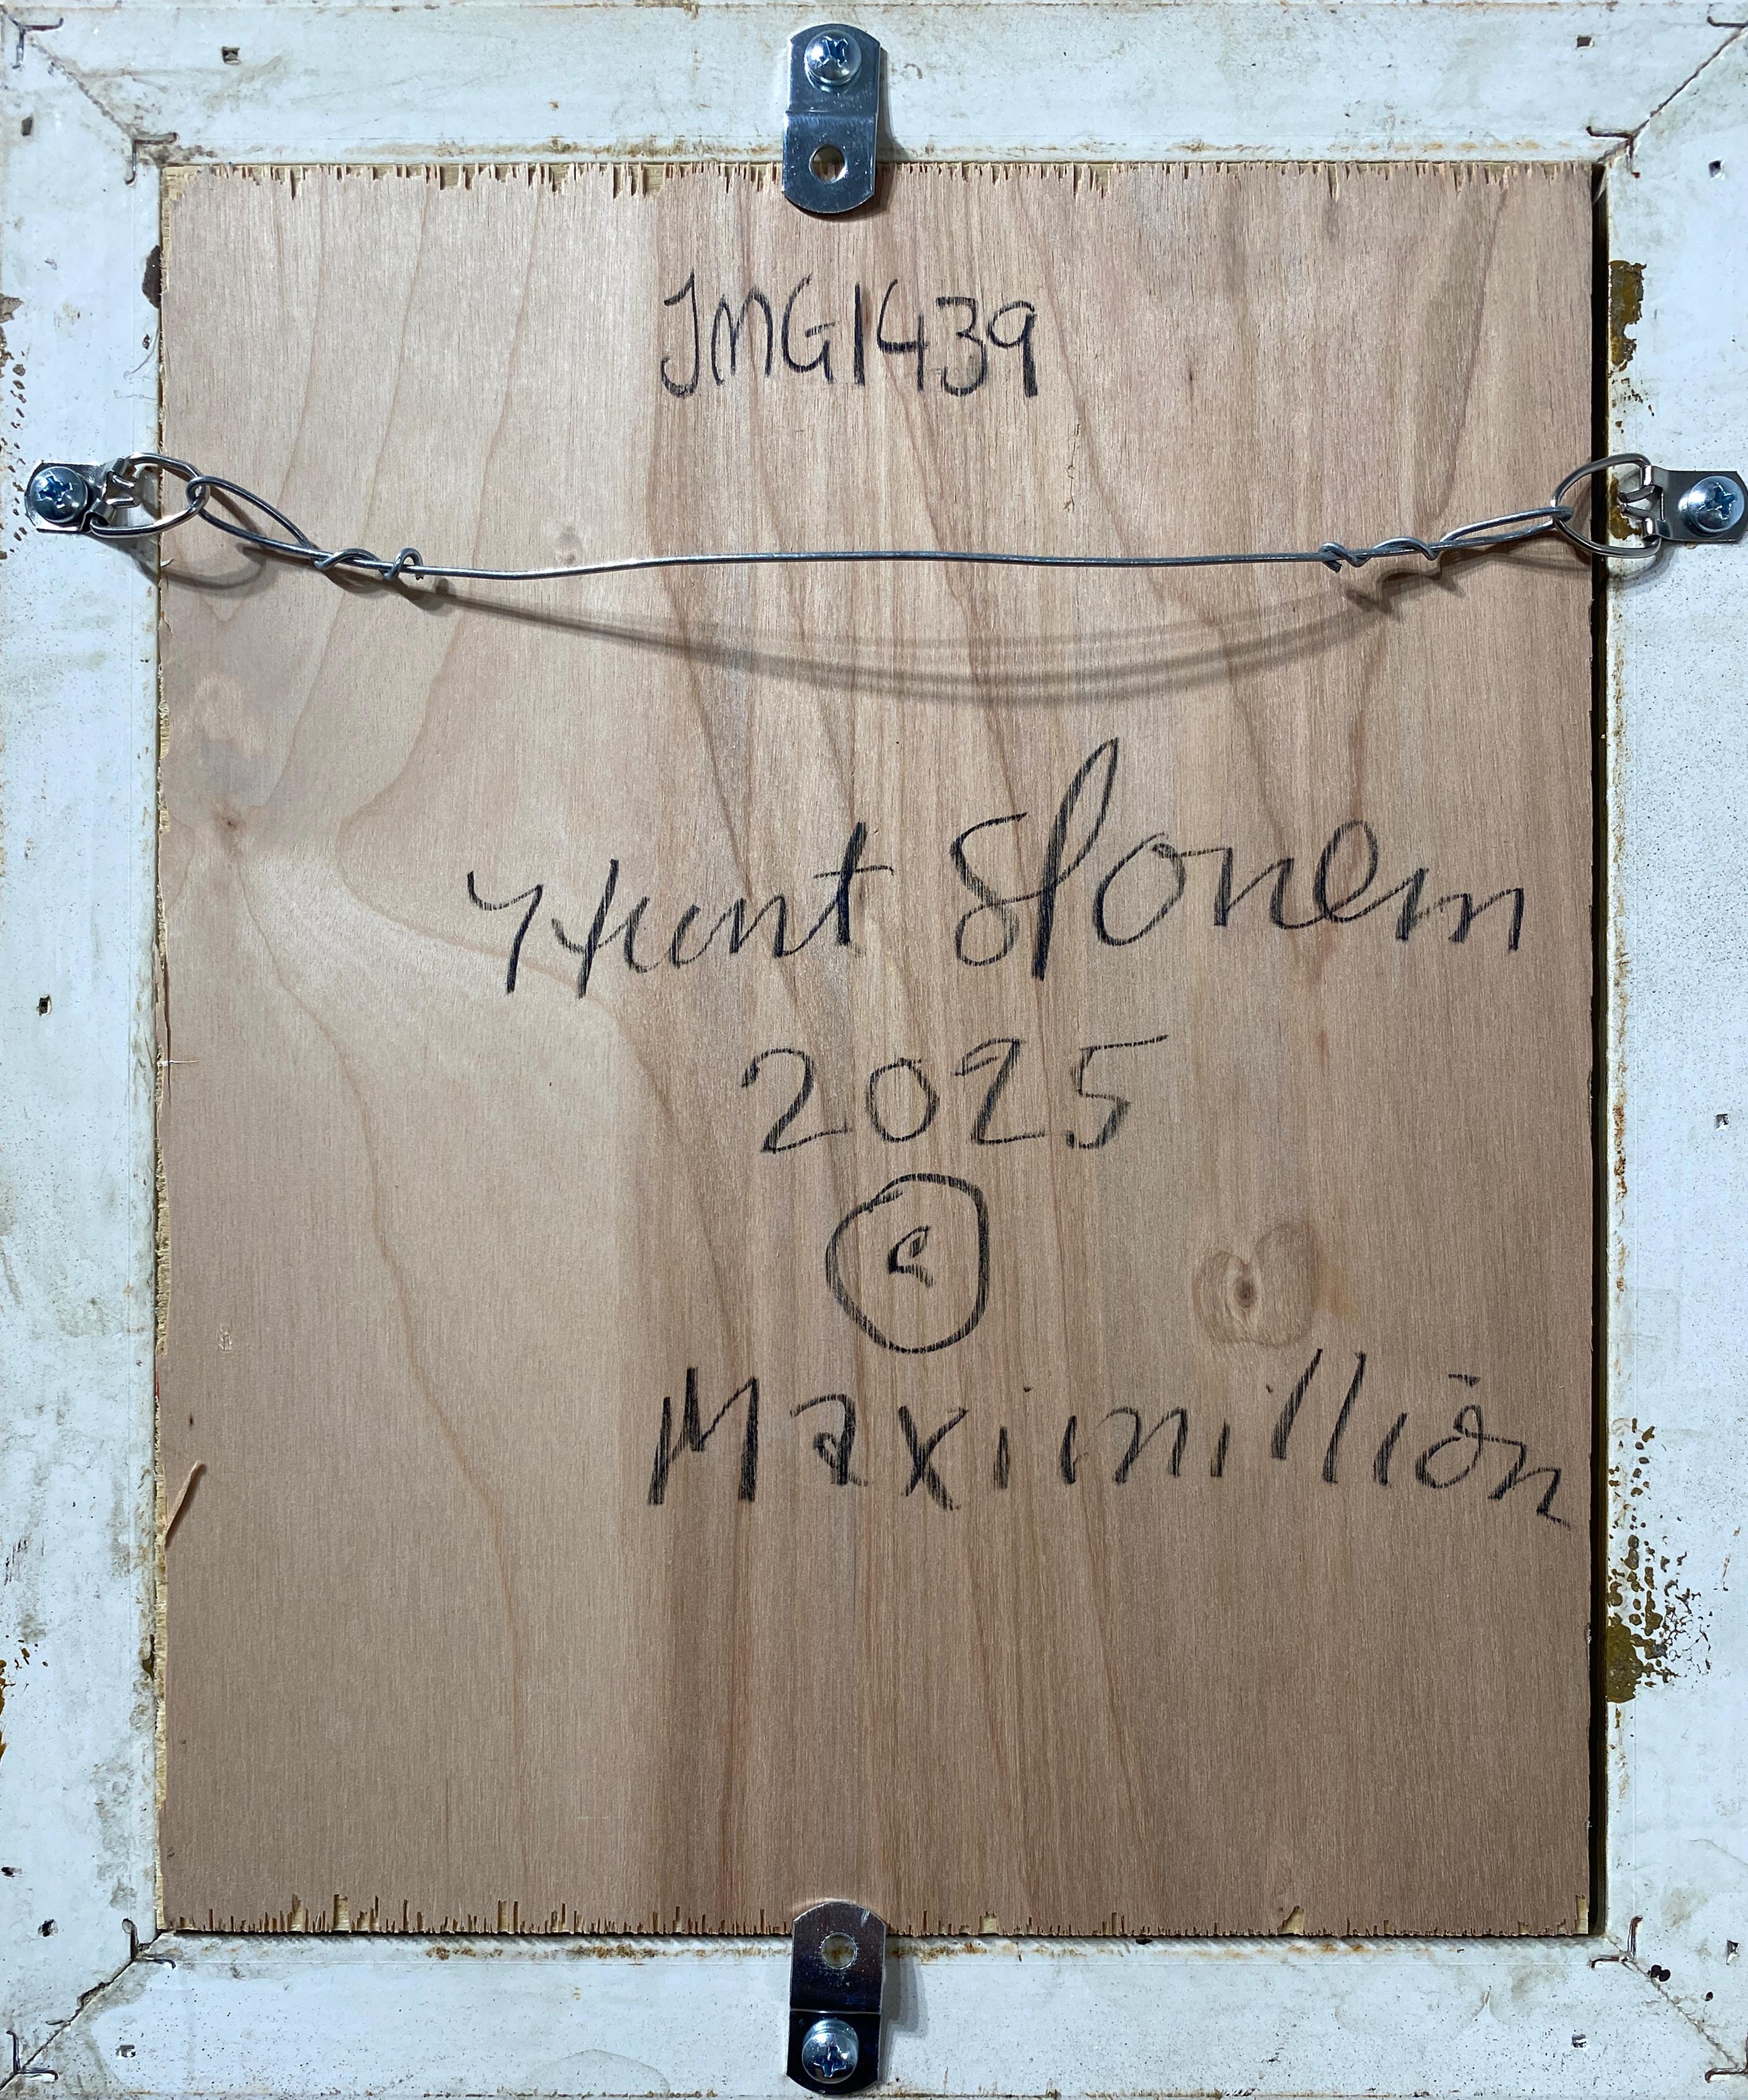 JMG1439
Hunt Slonem
2025
©
Maximillion